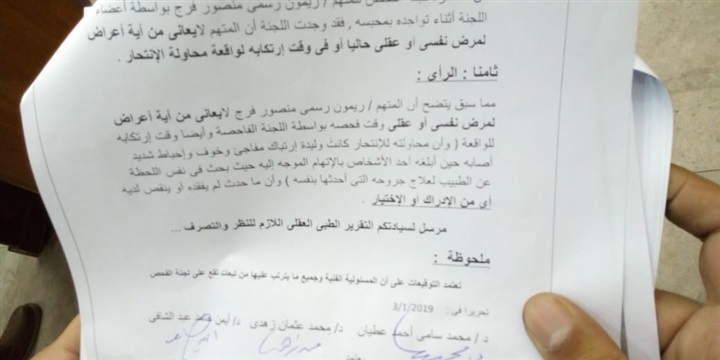 المتهم / ريمون رسمى منصور فرج بواسطة أعضاء
اللجنة أثناء تواجده بمحبسه , فقد وجدت اللجنة أن المتهم لايعانى من أية أعراض
لمرض نفسى أو عقلى حاليا أو فى وقت إرتكابه لواقعة محاولة الإنتحار .
ثامنا : الرأى :
مما سبق يتضح أن المتهم / ريمون رسمى منصور فرج لايعانى من أية أعراض
لمرض نفسى أو عقلى وقت فحصه بواسطة اللجنة الفاحصة وأيضا وقت إرتكابه
للواقعة ( وأن محاولته للإنتحار كانت وليدة إرتباك مفاجئ وخوف وإحباط شديد
أصابه حين أبلغه أحد الأشخاص بالإتهام الموجه إليه حيث بحث فى نفس اللحظة
عن الطبيب لعلاج جروحه التى أحدثها بنفسه ) وأن ما حدث لم يفقده أو ينقص لديه
أى من الإدراك أو الإختيار .
مرسل لسيادتكم التقرير الطبى العقلى اللازم للنظر والتصرف ...
ملحوظة :
تعتمد التوقيعات على أن المسئولية الفنية وجميع ما يترتب عليها من تبعات تقع على لجنة الفحص
تحريرا فى : 3/1/2019
د / محمد سامى أحمد عطيان د/محمد عثمان زهدى د/ أيمن محمد عبد الشافى